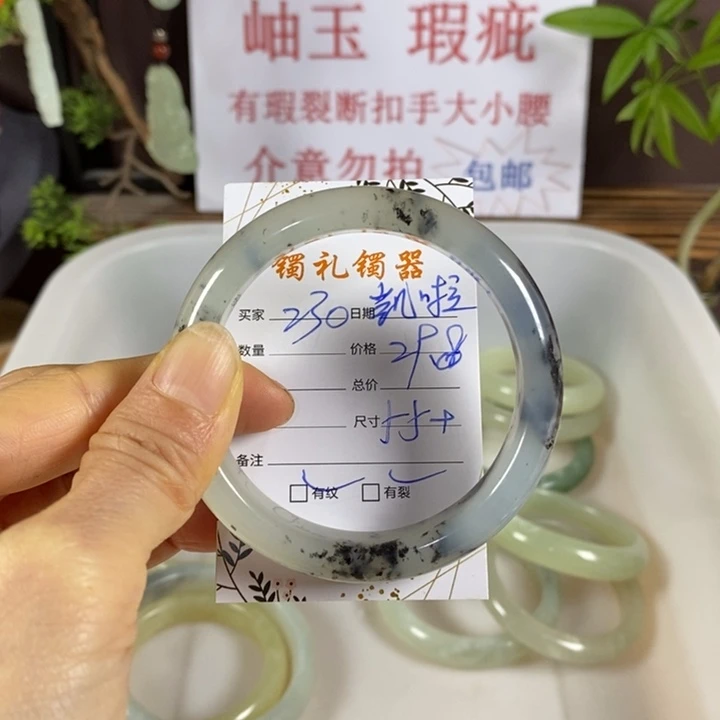 岫玉 瑕疵
有瑕裂断扣手大小腰
介意勿拍 包邮
镯礼镯器
买家 230 日期 凯啦
数量 价格 298
总价
尺寸 55+
备注
有纹 有裂